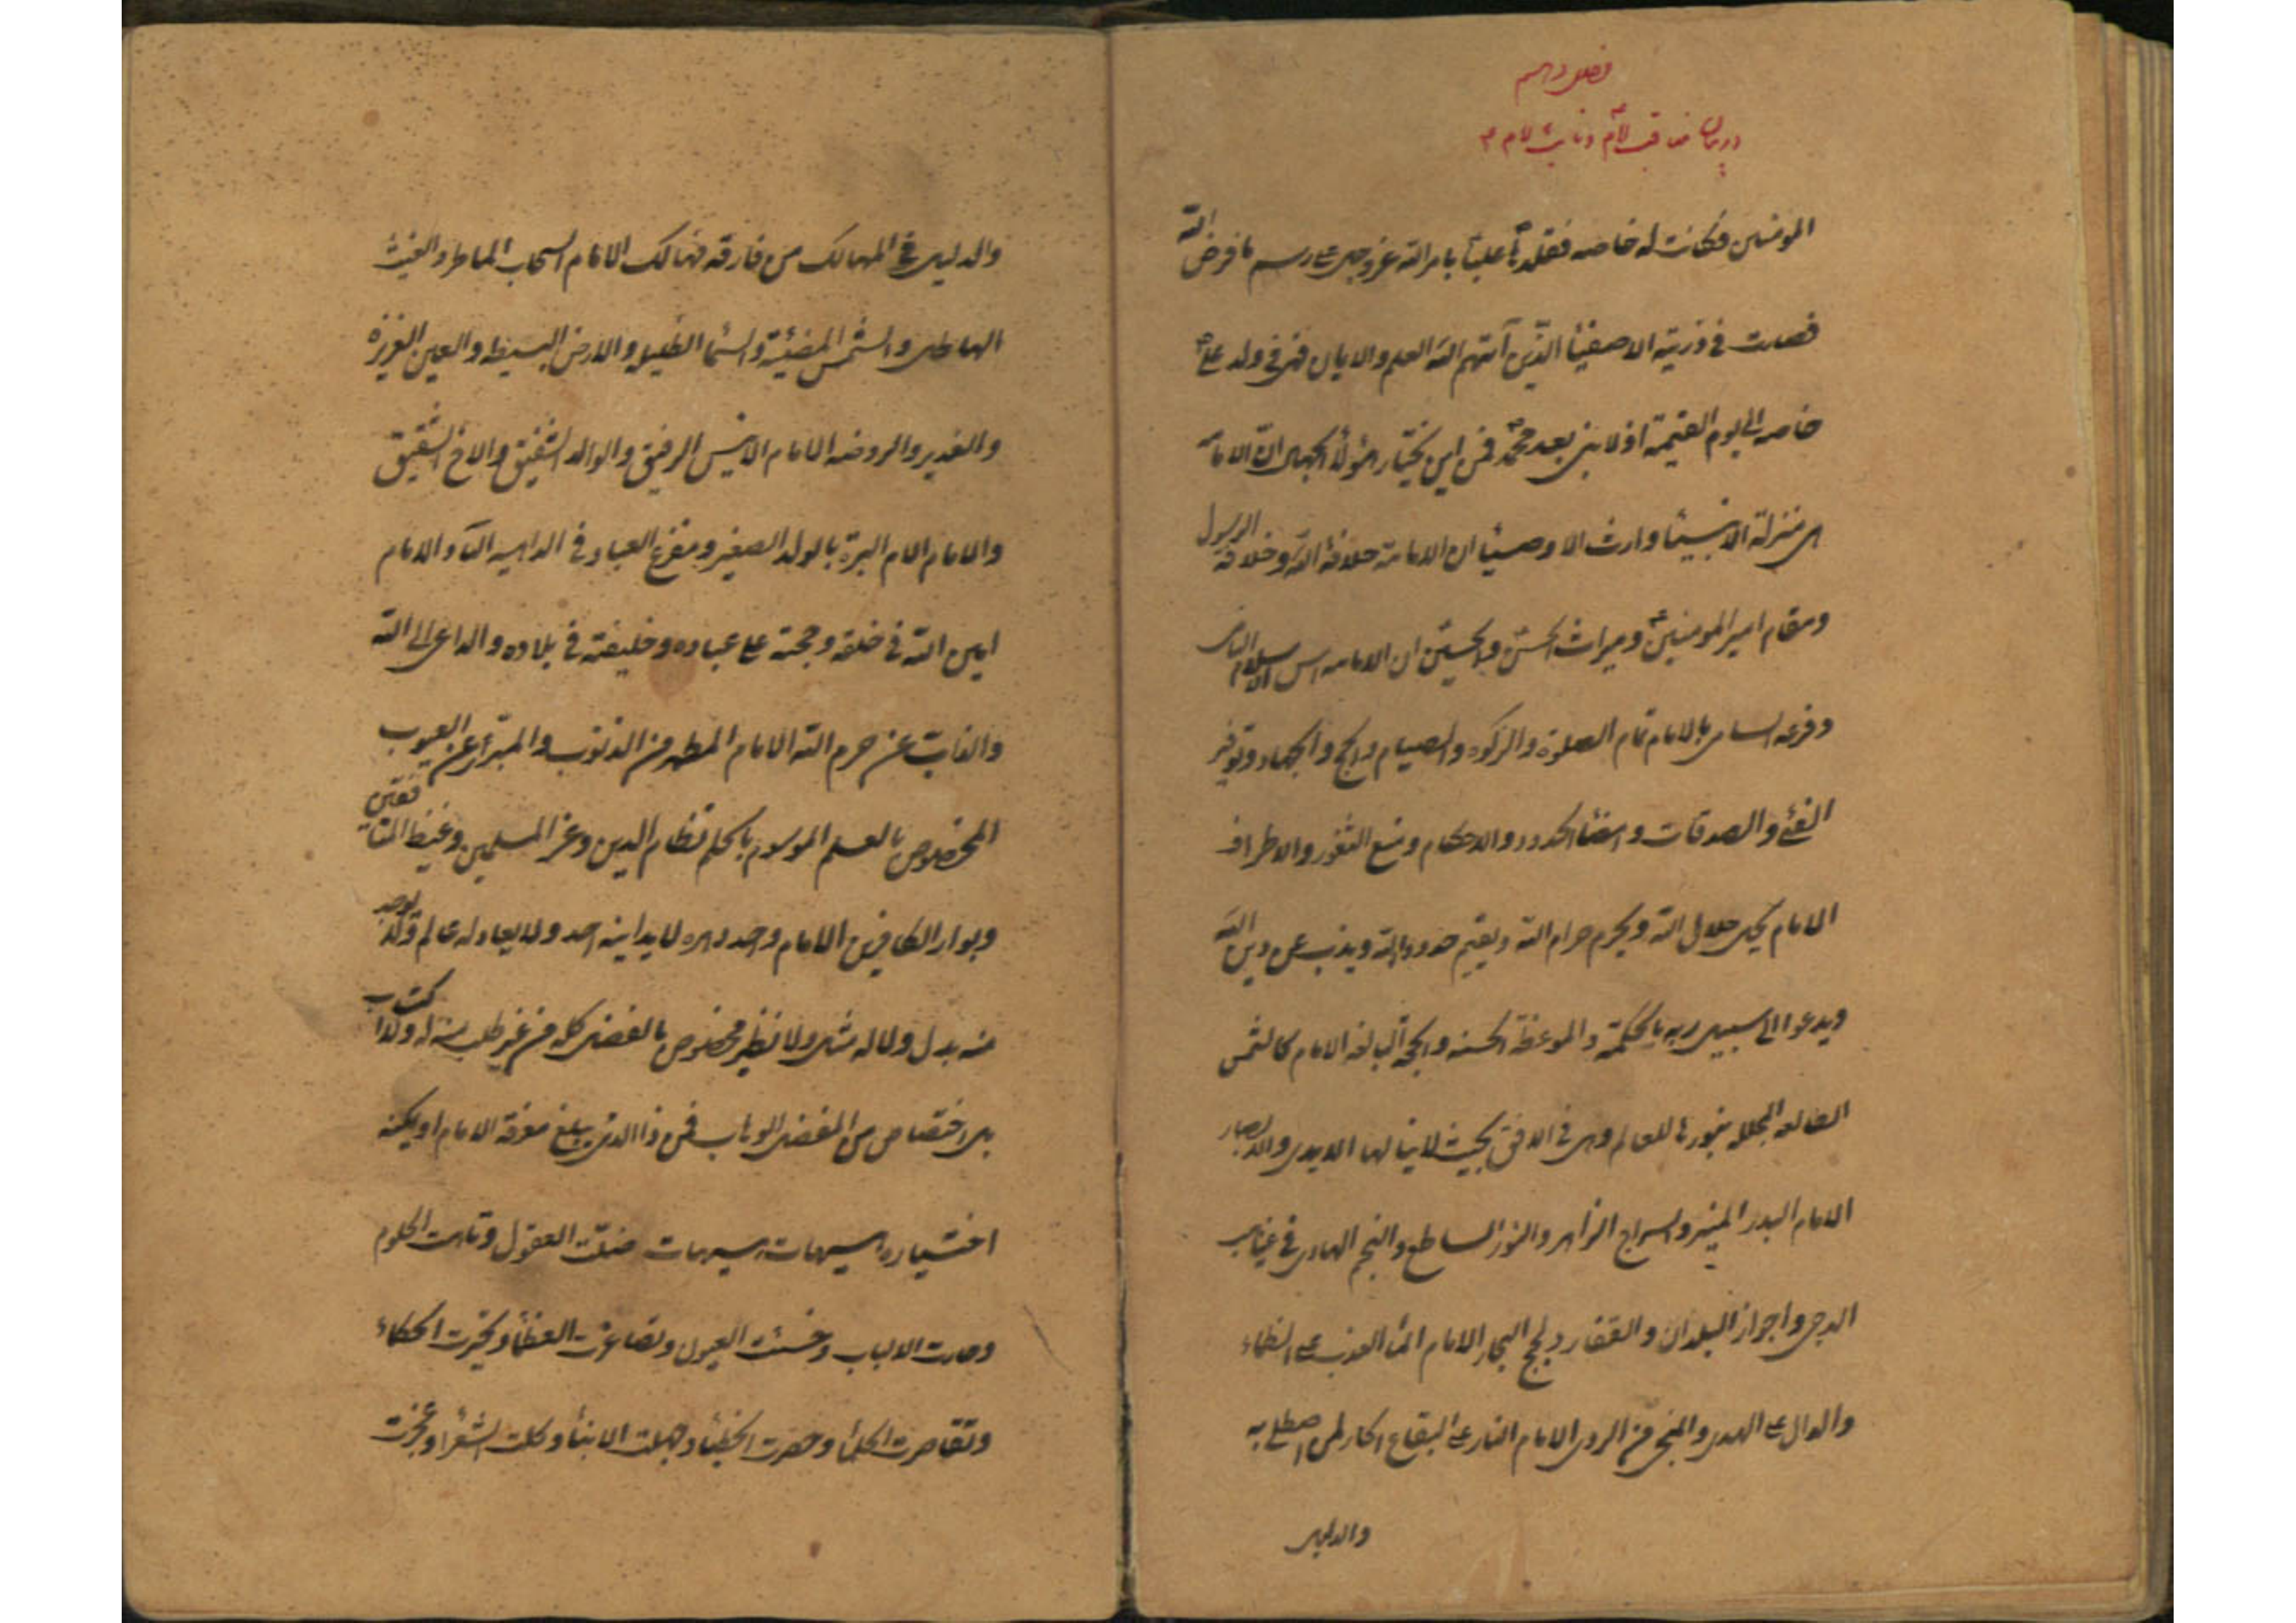 فصل دهم
در بیان مناقب امام و نایب امام ع
المومنین فکانت له خاصه فقلدها علیا بامر الله عز و جل علی رسم ما فرض الله
فصارت فی ذریته الاصفیا الذین آتیهم الله العلم و الایمان فهی فی ولد علی
خاصه الی یوم القیمة اذ لا نبی بعد محمد فمن این یختار هؤلاء الجهال ان الامامة
هی منزلة الانبیا و ارث الاوصیا ان الامامة خلافة الله و خلافة الرسول
و مقام امیر المومنین و میراث الحسن و الحسین ان الامامه اس الاسلام النامی
و فرعه السامی بالامام تمام الصلوة و الزکوه و الصیام و الحج و الجهاد و توفیر
الفئ و الصدقات و امضا الحدود و الاحکام و منع الثغور و الاطراف
الامام یحل حلال الله و یحرم حرام الله و یقیم حدود الله و یذب عن دین الله
و یدعوا الی سبیل ربه بالحکمة و الموعظة الحسنه و الحجة البالغه الامام کالشمس
الطالعه المجلله بنورها للعالم و هی فی الافق بحیث لا ینالها الایدی و الابصار
الامام البدر المنیر و السراج الزاهر و النور الساطع و النجم الهادی فی غیاهب
الدجی و اجواز البلدان و القفار و لجج البحار الامام الماء العذب علی الظماء
و الدال علی الهدی و المنجی من الردی الامام النار علی الیفاع الحار لمن اصطلی به
والدلیل
والدلیل فی المهالک من فارقه فهالک الامام السحاب الماطر و الغیث
الهاطل و الشمس المضیئة و السما الظلیله و الارض البسیطه و العین الغزیره
و الغدیر و الروضه الامام الانیس الرفیق و الوالد الشفیق و الاخ الشقیق
و الامام الام البرة بالولد الصغیر و مفزع العباد فی الداهیه الناد الامام
امین الله فی خلقه و حجته علی عباده و خلیفته فی بلاده و الداعی الی الله
و الذاب عن حرم الله الامام المطهر من الذنوب و المبرأ عن العیوب
المخصوص بالعلم الموسوم بالحلم نظام الدین و عز المسلمین و غیظ المنافقین
و بوار الکافرین الامام واحد دهره لا یدانیه احد و لا یعادله عالم و لا یوجد
منه بدل و لا له مثل و لا نظیر مخصوص بالفضل کله من غیر طلب منه له و لا اکتساب
بل اختصاص من المفضل الوهاب فمن ذا الذی یبلغ معرفة الامام او یمکنه
اختیاره هیهات هیهات ضلت العقول و تاهت الحلوم
و حارت الالباب و خسئت العیون و تصاغرت العظماء و تحیرت الحکماء
و تقاصرت الحلماء و حصرت الخطباء و جهلت الالباء و کلت الشعراء و عجزت